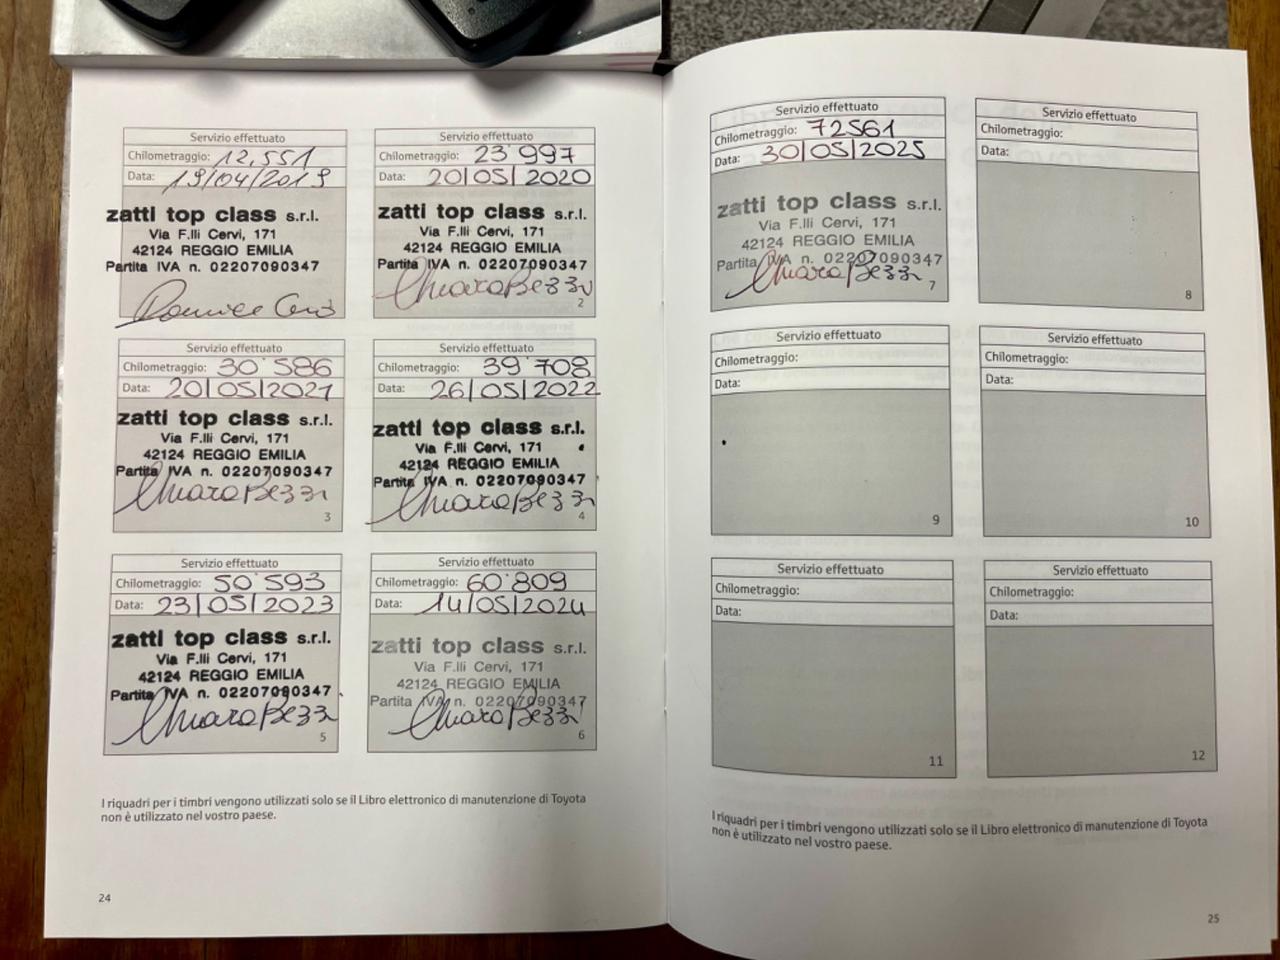 Servizio effettuato
Chilometraggio: 12.551
Data: 19/04/2019
zatti top class s.r.l.
Via F.lli Cervi, 171
42124 REGGIO EMILIA
Partita IVA n. 02207090347
Servizio effettuato
Chilometraggio: 23'997
Data: 20/05/2020
zatti top class s.r.l.
Via F.lli Cervi, 171
42124 REGGIO EMILIA
Partita IVA n. 02207090347
Chiara Bezzi
2
Servizio effettuato
Chilometraggio: 30'586
Data: 20/05/2021
zatti top class s.r.l.
Via F.lli Cervi, 171
42124 REGGIO EMILIA
Partita IVA n. 02207090347
Chiara Bezzi
3
Servizio effettuato
Chilometraggio: 39'708
Data: 26/05/2022
zatti top class s.r.l.
Via F.lli Cervi, 171
42124 REGGIO EMILIA
Partita IVA n. 02207090347
Chiara Bezzi
4
Servizio effettuato
Chilometraggio: 50'593
Data: 23/05/2023
zatti top class s.r.l.
Via F.lli Cervi, 171
42124 REGGIO EMILIA
Partita IVA n. 02207090347
Chiara Bezzi
5
Servizio effettuato
Chilometraggio: 60'809
Data: 14/05/2024
zatti top class s.r.l.
Via F.lli Cervi, 171
42124 REGGIO EMILIA
Partita IVA n. 02207090347
Chiara Bezzi
6
I riquadri per i timbri vengono utilizzati solo se il Libro elettronico di manutenzione di Toyota
non è utilizzato nel vostro paese.
24
Servizio effettuato
Chilometraggio: 72561
Data: 30/05/2025
zatti top class s.r.l.
Via F.lli Cervi, 171
42124 REGGIO EMILIA
Partita IVA n. 02207090347
Chiara Bezzi
7
Servizio effettuato
Chilometraggio:
Data:
8
Servizio effettuato
Chilometraggio:
Data:
9
Servizio effettuato
Chilometraggio:
Data:
10
Servizio effettuato
Chilometraggio:
Data:
11
Servizio effettuato
Chilometraggio:
Data:
12
I riquadri per i timbri vengono utilizzati solo se il Libro elettronico di manutenzione di Toyota
non è utilizzato nel vostro paese.
25